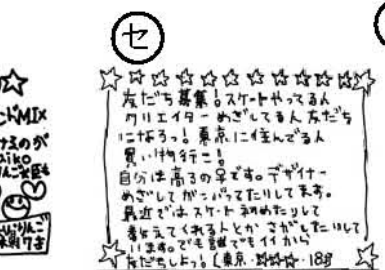 セ
友だち募集!スケートやってる人
クリエイターめざしてる人友だち
になろっ!東京に住んでる人
買い物行こ!
自分は高3の子です。デザイナー
めざしてがんばってたりしてます。
最近ではスケート初めたりして
教えてくれる人とかさがしたりして
います。でも誰でもイイから
友だちしよっ!(東京・・18才
ドMIX
aiko